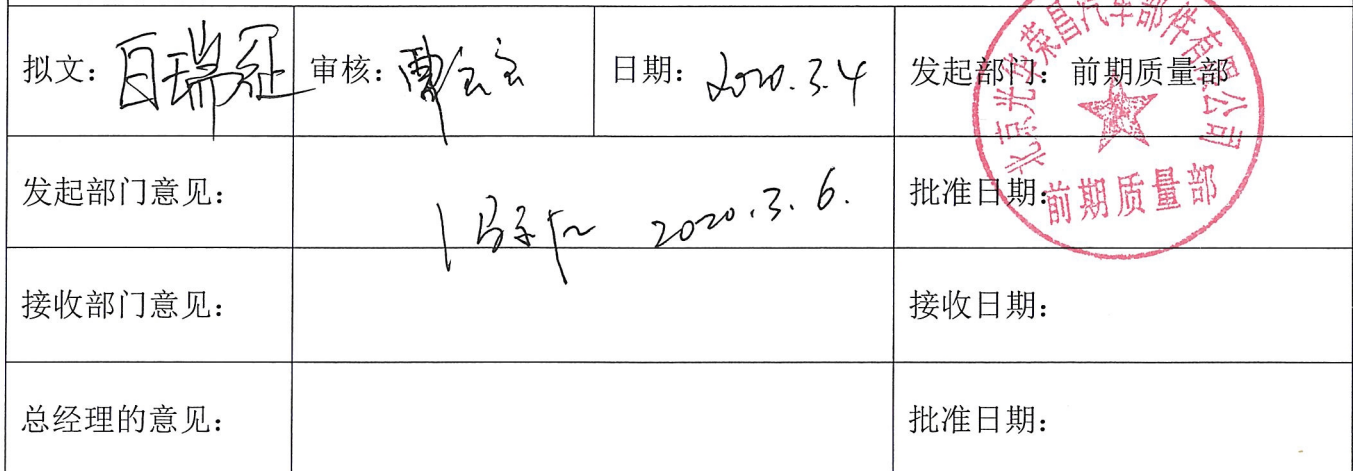 拟文：白瑞征 审核：曹 日期：2020.3.4 发起部门：前期质量部
发起部门意见： 2020.3.6. 批准日期：
接收部门意见： 接收日期：
总经理的意见： 批准日期：
北京光华荣昌汽车部件有限公司
前期质量部